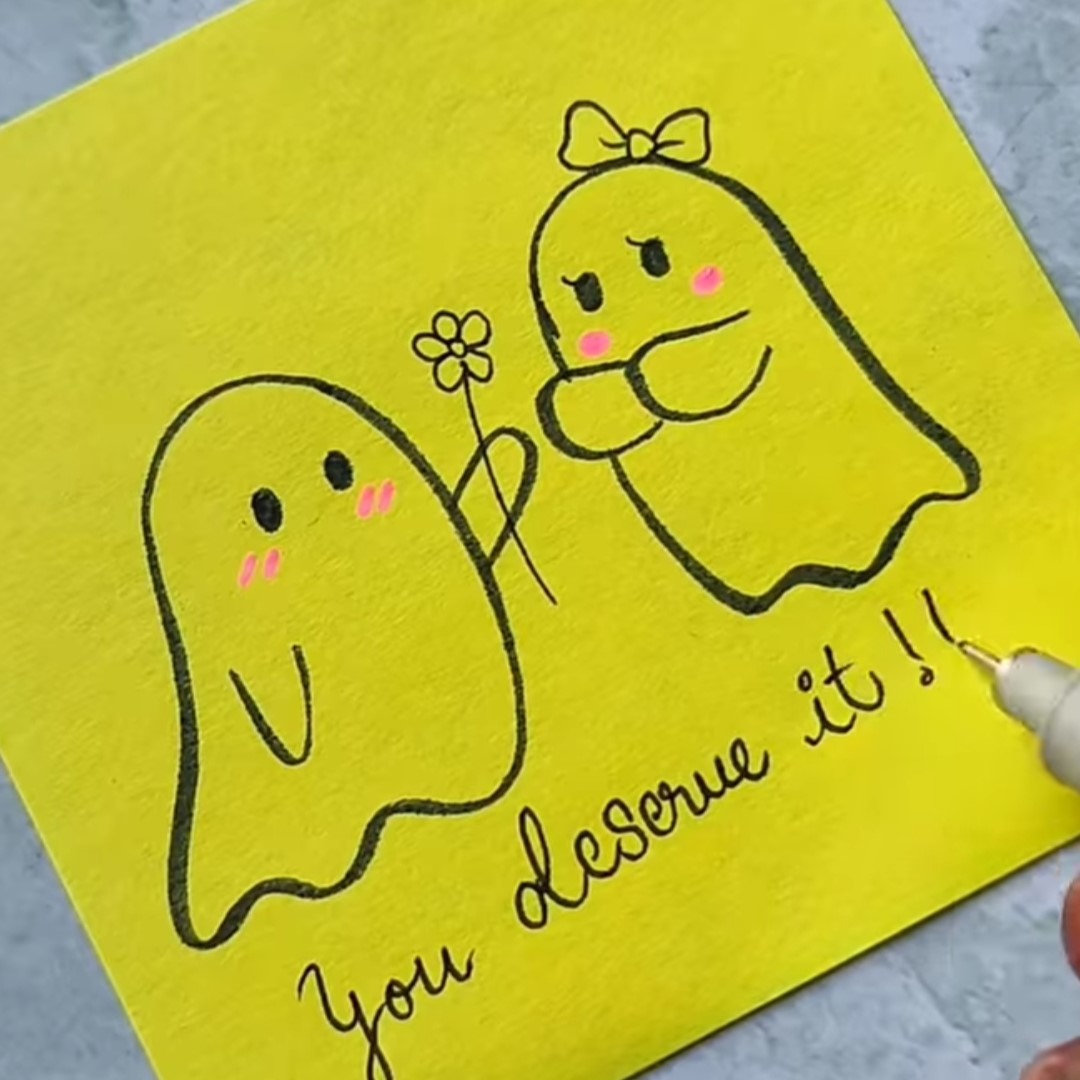 you deserve it !!